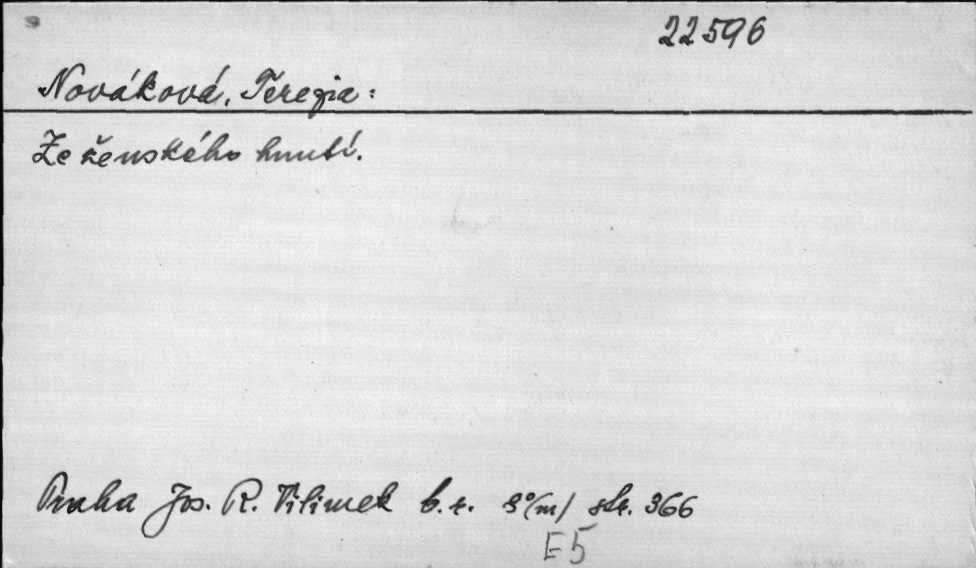 22596
Nováková, Terezia:
Ze ženského hnutí.
Praha Jos. R. Vilimek b. r. 8°(m) str. 366
E5